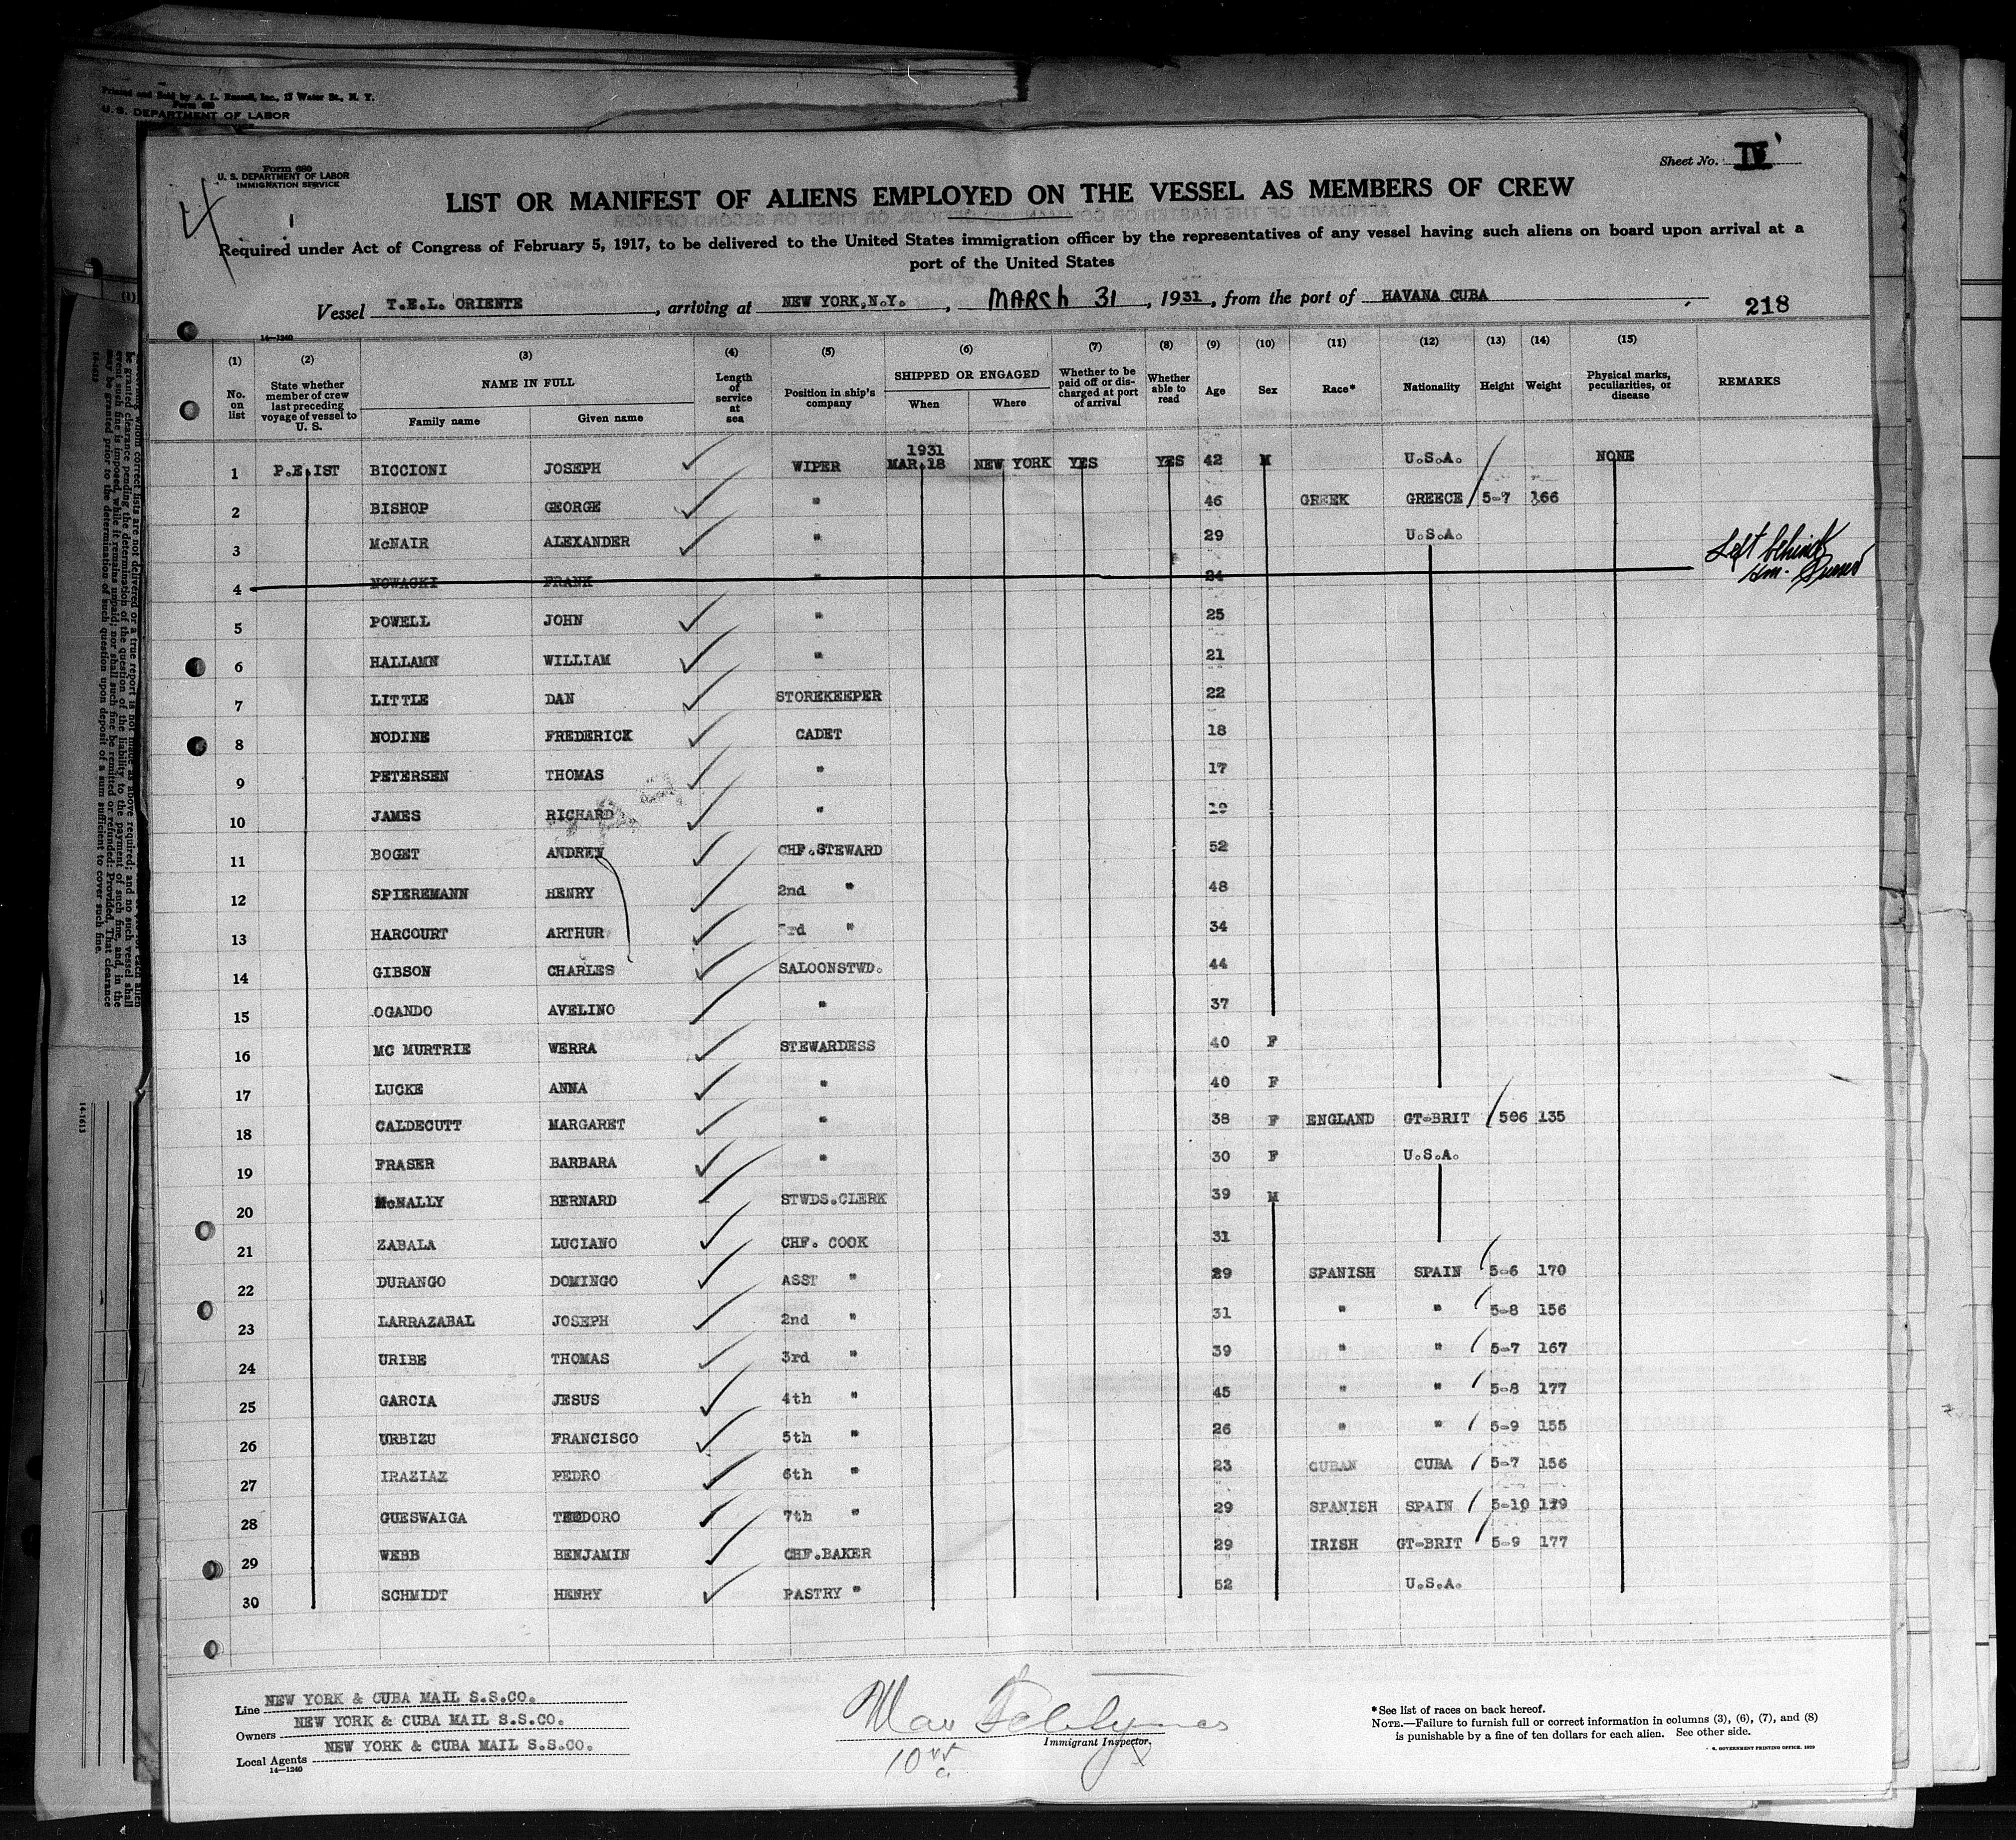 Printed and Sold by A. L. Russell, Inc., 13 Water St., N. Y.
U. S. DEPARTMENT OF LABOR
Form 680
U. S. DEPARTMENT OF LABOR
IMMIGRATION SERVICE
Sheet No. IV
LIST OR MANIFEST OF ALIENS EMPLOYED ON THE VESSEL AS MEMBERS OF CREW
Required under Act of Congress of February 5, 1917, to be delivered to the United States immigration officer by the representatives of any vessel having such aliens on board upon arrival at a
port of the United States
Vessel T.E.L. ORIENTE, arriving at NEW YORK,N.Y., MARCH 31, 1931, from the port of HAVANA CUBA
218
14—1240
(1) (2) (3) (4) (5) (6) (7) (8) (9) (10) (11) (12) (13) (14) (15)
No. on list
State whether member of crew last preceding voyage of vessel to U. S.
NAME IN FULL
Family name Given name
Length of service at sea
Position in ship's company
SHIPPED OR ENGAGED
When Where
Whether to be paid off or discharged at port of arrival
Whether able to read
Age Sex Race* Nationality Height Weight
Physical marks, peculiarities, or disease
REMARKS
1931
1 P.E.IST BICCIONI JOSEPH WIPER MAR.18 NEW YORK YES YES 42 M U.S.A. NONE
2 BISHOP GEORGE " 46 GREEK GREECE 5-7 166
3 McNAIR ALEXANDER " 29 U.S.A.
4 NOWACKI FRANK " 24 Left behind
5 POWELL JOHN " 25
6 HALLAMN WILLIAM " 21
7 LITTLE DAN STOREKEEPER 22
8 NODINE FREDERICK CADET 18
9 PETERSEN THOMAS " 17
10 JAMES RICHARD " 19
11 BOGET ANDREW CHF.STEWARD 52
12 SPIEREMANN HENRY 2nd " 48
13 HARCOURT ARTHUR 3rd " 34
14 GIBSON CHARLES SALOONSTWD. 44
15 OGANDO AVELINO " 37
16 MC MURTRIE WERRA STEWARDESS 40 F
17 LUCKE ANNA " 40 F
18 CALDECUTT MARGARET " 38 F ENGLAND GT-BRIT 506 135
19 FRASER BARBARA " 30 F U.S.A.
20 McNALLY BERNARD STWDS.CLERK 39 M
21 ZABALA LUCIANO CHF. COOK 31
22 DURANGO DOMINGO ASST " 29 SPANISH SPAIN 5-6 170
23 LARRAZABAL JOSEPH 2nd " 31 " " 5-8 156
24 URIBE THOMAS 3rd " 39 " " 5-7 167
25 GARCIA JESUS 4th " 45 " " 5-8 177
26 URBIZU FRANCISCO 5th " 26 " " 5-9 155
27 IRAZIAZ PEDRO 6th " 23 CUBAN CUBA 5-7 156
28 GUESWAIGA TEODORO 7th " 29 SPANISH SPAIN 5-10 179
29 WEBB BENJAMIN CHF.BAKER 29 IRISH GT-BRIT 5-9 177
30 SCHMIDT HENRY PASTRY " 52 U.S.A.
Line NEW YORK & CUBA MAIL S.S.CO.
Owners NEW YORK & CUBA MAIL S.S.CO.
Local Agents NEW YORK & CUBA MAIL S.S.CO.
14—1240
Immigrant Inspector.
*See list of races on back hereof.
NOTE.—Failure to furnish full or correct information in columns (3), (6), (7), and (8)
is punishable by a fine of ten dollars for each alien. See other side.